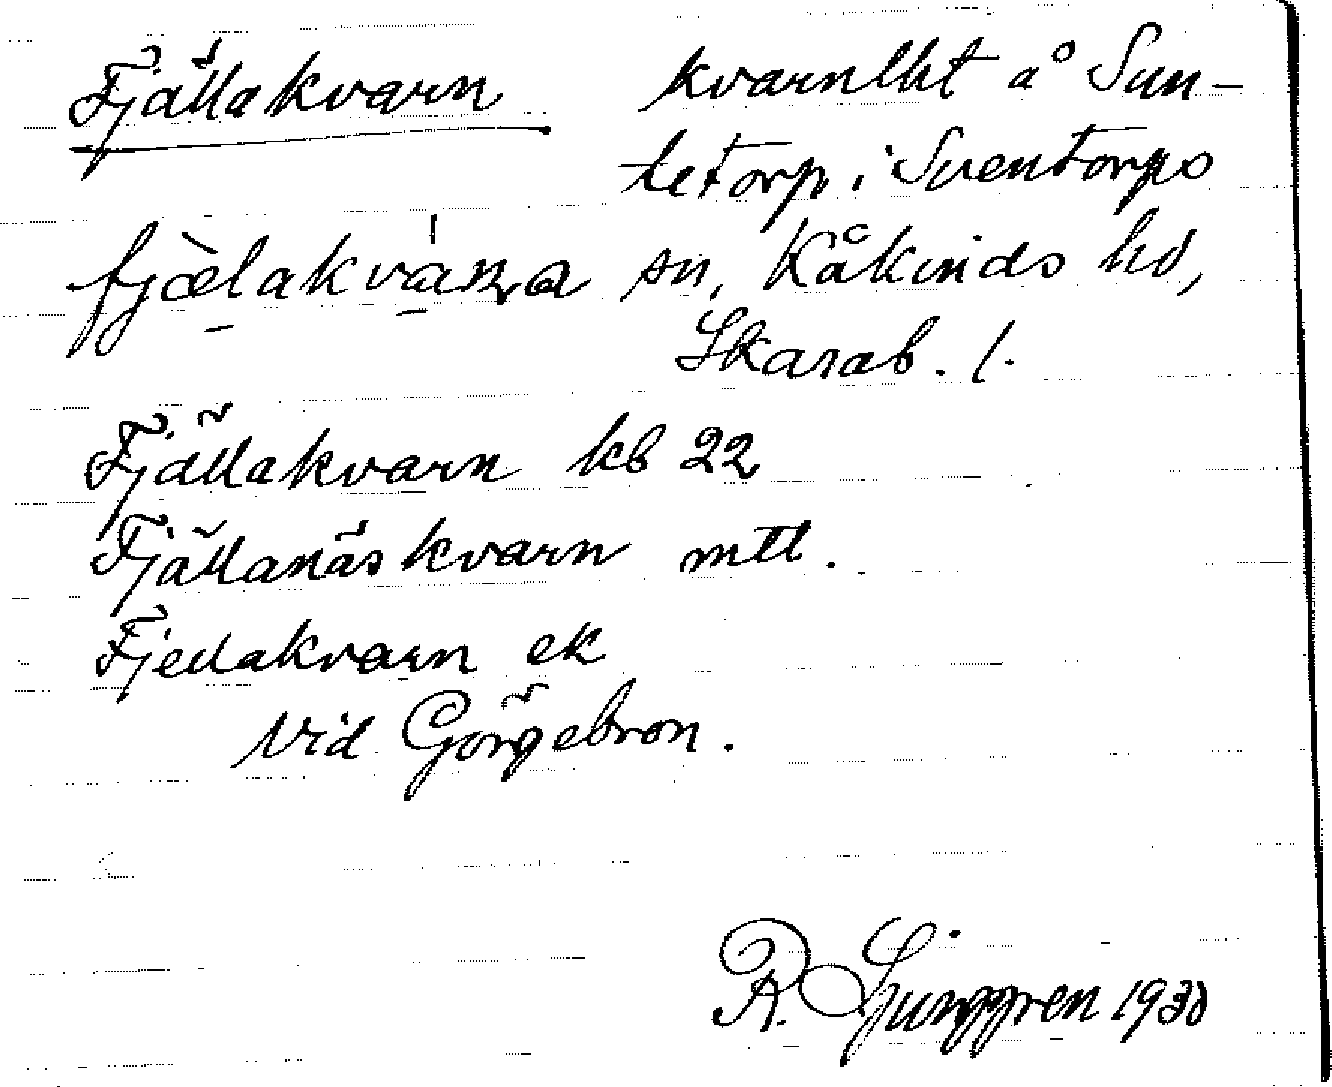 Fjällakvarn kvarnlht å Sun-
tetorp i Sventorps
fjælakvana sn, Kåkinds hd,
Skarab. l.
Fjällakvarn kb 22
Fjällanäskvarn mtl.
Fjellakvarn ek
vid Görgebron.
R. Ljunggren 1930